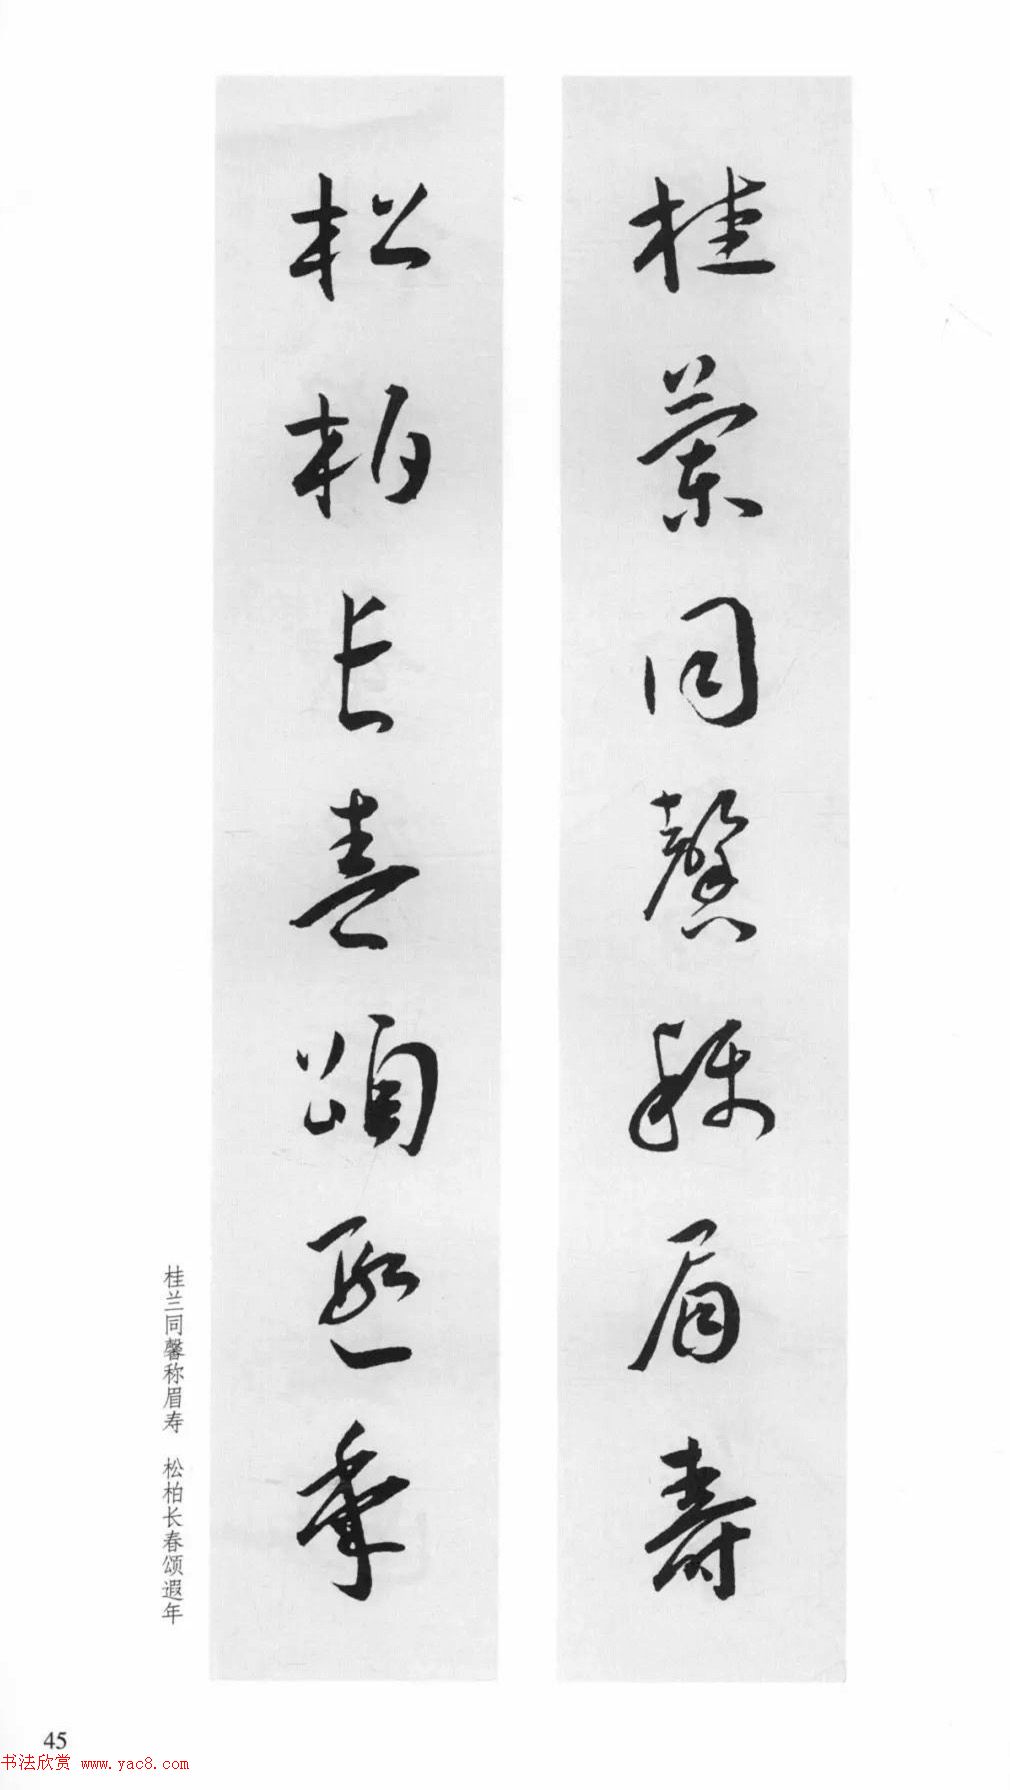 桂蘭同馨称眉壽
松柏長春頌遐年
桂兰同馨称眉寿　松柏长春颂遐年
45
书法欣赏 www.yac8.com